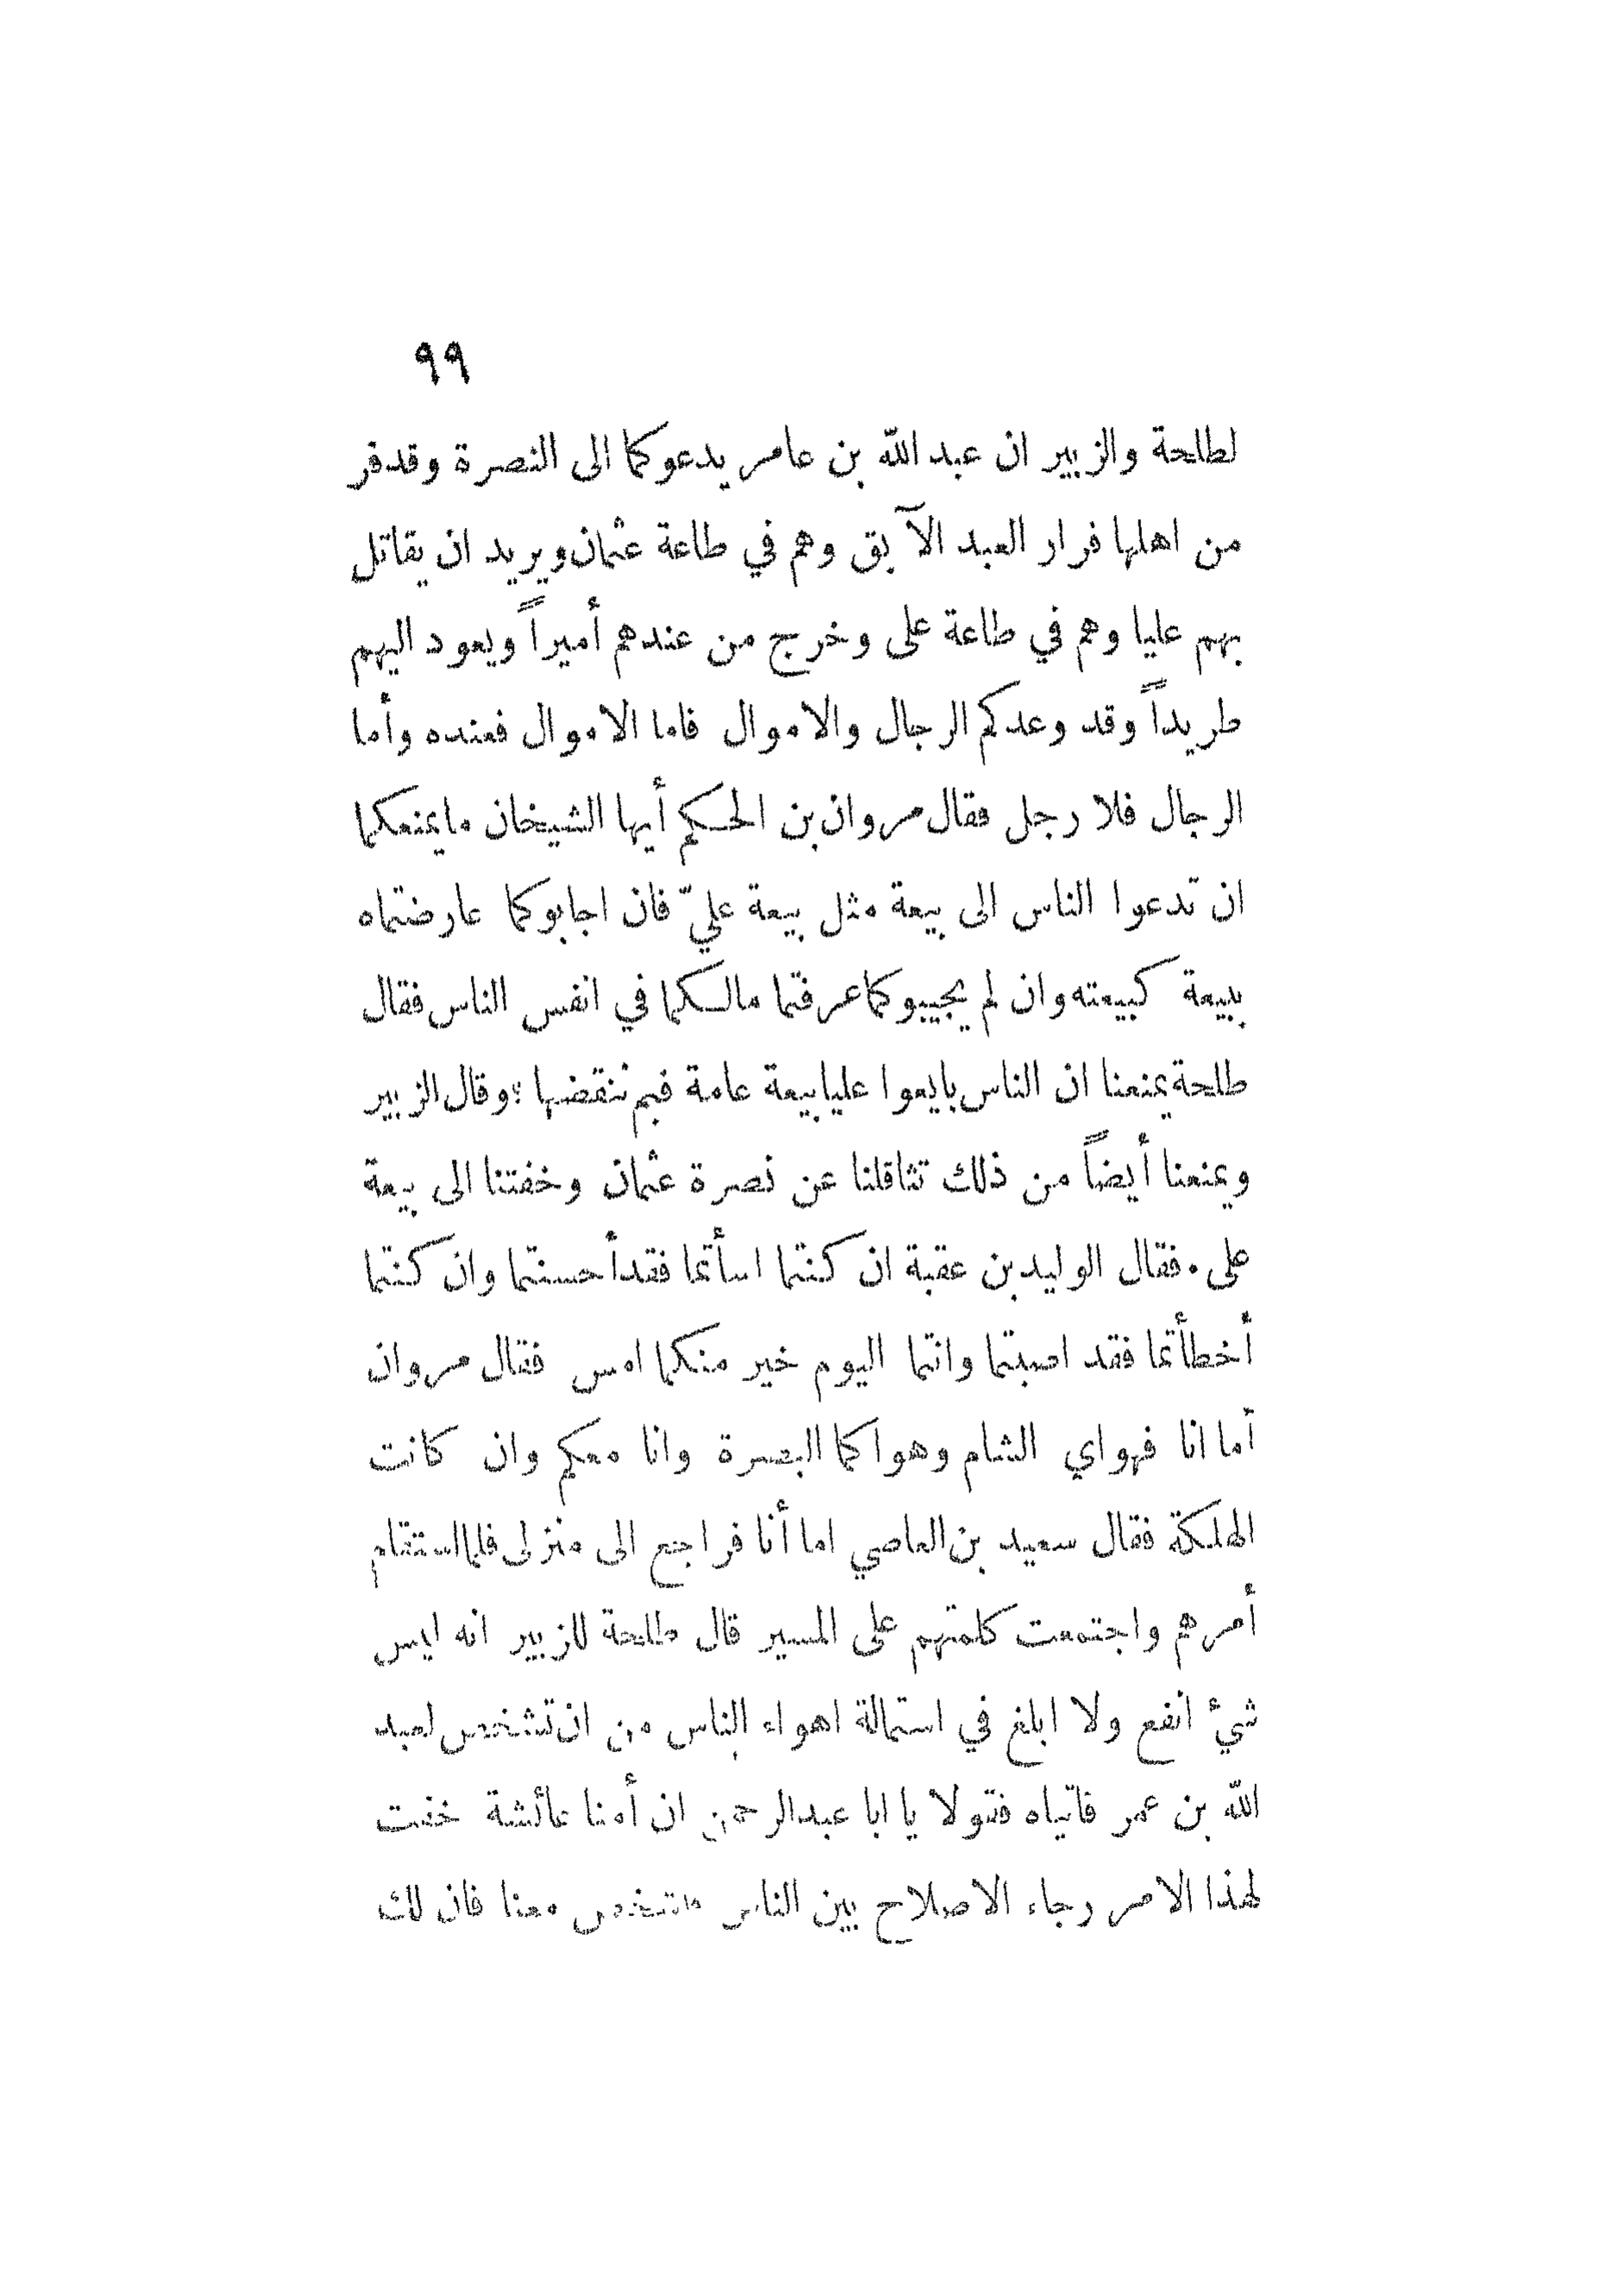 ٩٩
لطلحة والزبير ان عبد الله بن عامر يدعوكما الى النصرة وقد فر
من اهلها فرار العبد الآبق وهم في طاعة عثمان ويريد ان يقاتل
بهم عليا وهم في طاعة على وخرج من عندهم أميراً ويعود اليهم
طريداً وقد وعدكم الرجال والاموال فاما الاموال فعنده وأما
الرجال فلا رجل فقال مروان بن الحكم أيها الشيخان ما يمنعكما
ان تدعوا الناس الى بيعة مثل بيعة عليّ فان اجابوكما عارضتماه
ببيعة كبيعته وان لم يجيبوكما عرفتما مالكما في انفس الناس فقال
طلحة يمنعنا ان الناس بايعوا عليا بيعة عامة فبم ننقضها ؛ وقال الزبير
ويمنعنا أيضاً من ذلك تثاقلنا عن نصرة عثمان وخفتنا الى بيعة
على . فقال الوليد بن عقبة ان كنتما اسأتما فقد أحسنتما وان كنتما
أخطأتما فقد اصبتما وانتما اليوم خير منكما امس فقال مروان
أما انا فهواي الشام وهواكما البصرة وانا معكم وان كانت
الهلكة فقال سعيد بن العاصي اما أنا فراجع الى منزلى فلما استقام
أمرهم واجتمعت كلمتهم على المسير قال طلحة للزبير انه ليس
شيْ انفع ولا ابلغ في استمالة اهواء الناس من ان تشخص لعبد
الله بن عمر فاتياه فقولا يا ابا عبدالرحمن ان أمنا عائشة خفت
لهذا الامر رجاء الاصلاح بين الناس معنا فان لك